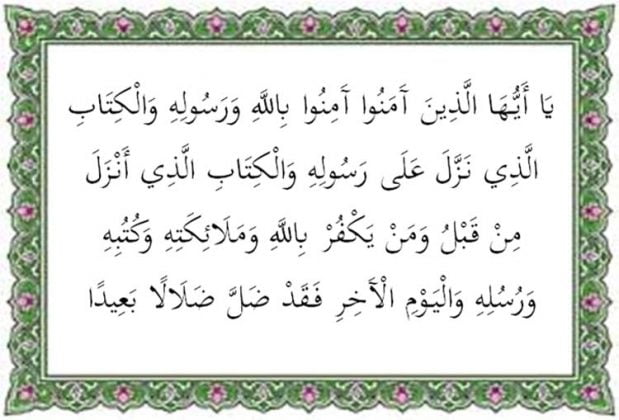 يَا أَيُّهَا الَّذِينَ آَمَنُوا آَمِنُوا بِاللَّهِ وَرَسُولِهِ وَالْكِتَابِ
الَّذِي نَزَّلَ عَلَى رَسُولِهِ وَالْكِتَابِ الَّذِي أَنْزَلَ
مِنْ قَبْلُ وَمَنْ يَكْفُرْ بِاللَّهِ وَمَلَائِكَتِهِ وَكُتُبِهِ
وَرُسُلِهِ وَالْيَوْمِ الْآَخِرِ فَقَدْ ضَلَّ ضَلَالًا بَعِيدًا